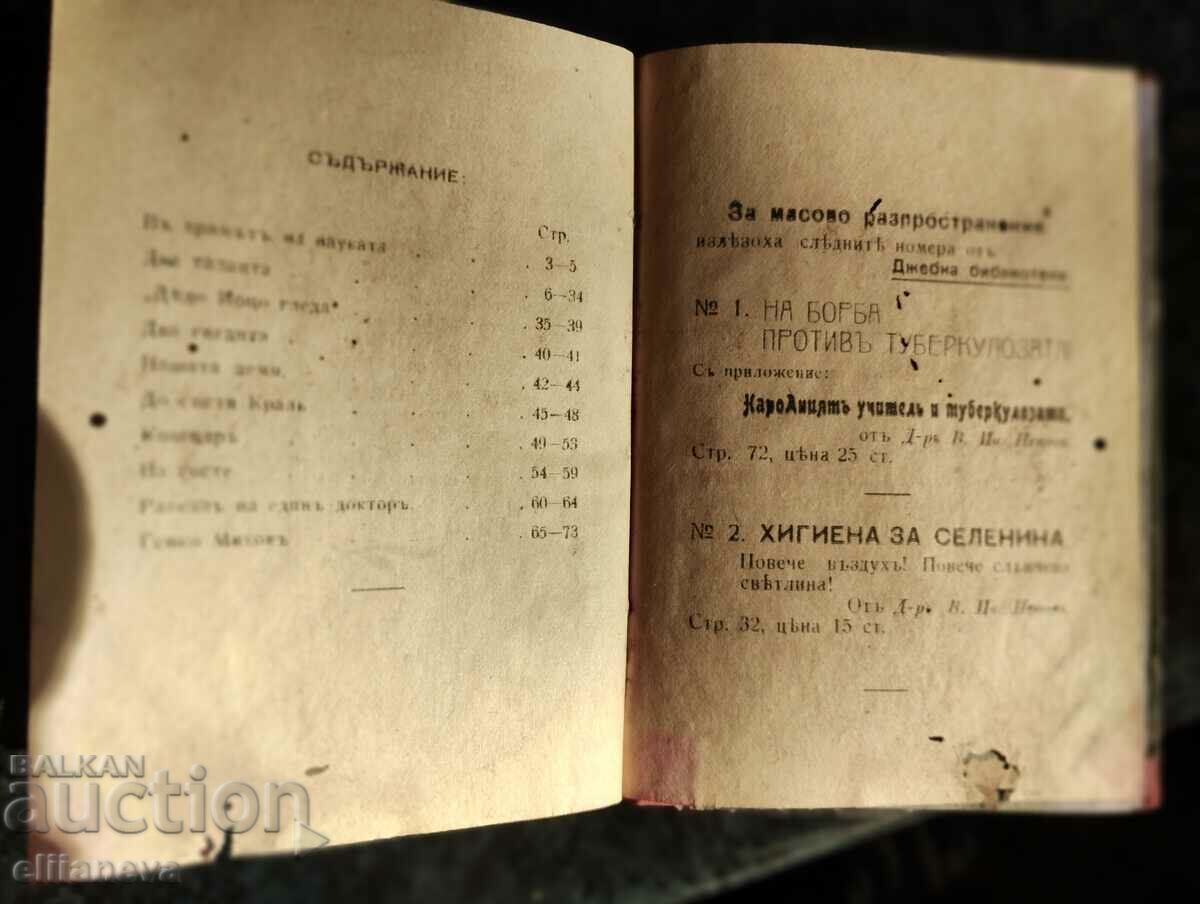 СЪДЪРЖАНИЕ:
Стр.
Въ храмътъ на науката 3—5
Два таланта 6—34
„Дѣдо Йоцо гледа“ 35—39
Два 40—41
42—44
До 45—48
49—53
На гости 54—59
Разказъ на единъ докторъ 60—64
65—73
За масово разпространение
излѣзоха слѣднитѣ номера отъ
Джебна библиотека
№ 1. НА БОРБА
ПРОТИВЪ ТУБЕРКУЛОЗАТА
Съ приложение:
Народниятъ учитель и туберкулозата.
отъ Д-ръ В. Ив.
Стр. 72, цѣна 25 ст.
№ 2. ХИГИЕНА ЗА СЕЛЕНИНА
Повече въздухъ! Повече слънчева
свѣтлина!
Отъ Д-ръ В. Ив.
Стр. 32, цѣна 15 ст.
BALKAN
auction
ellianeva